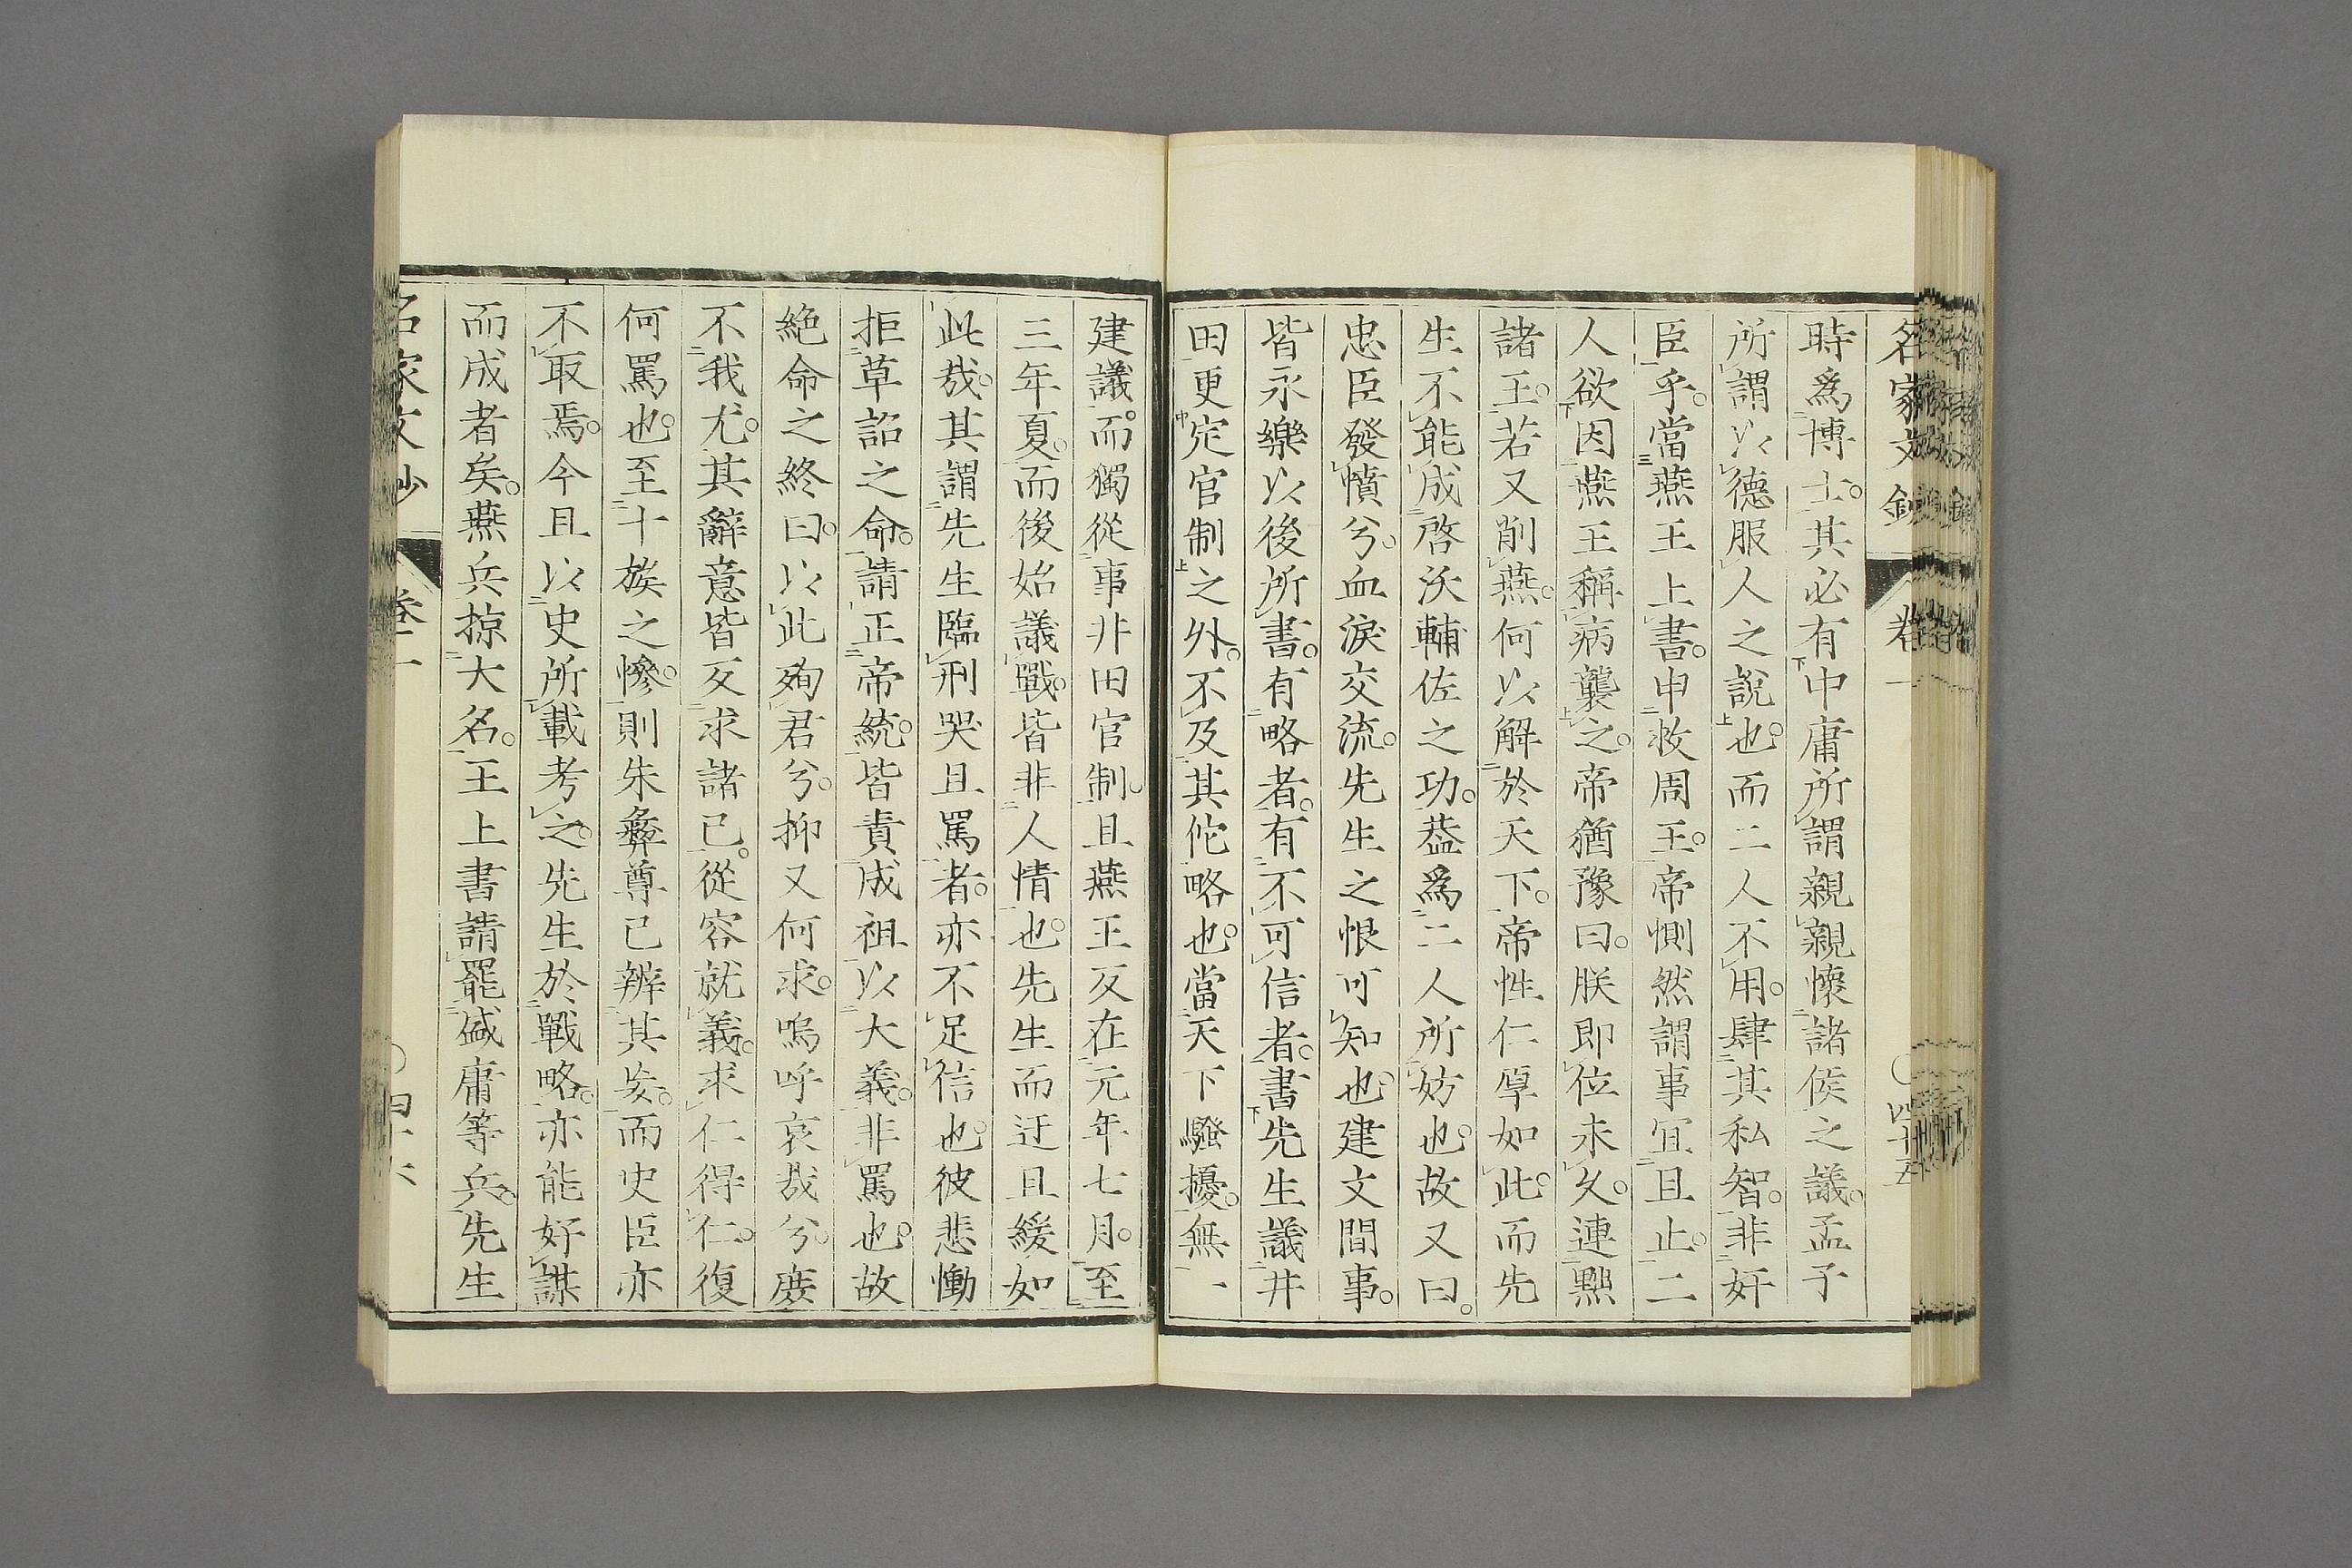 名家文鈔 卷一 〇四十五
時爲博士。其必有中庸所謂親親懷諸侯之議。孟子
所謂以德服人之說也。而二人不用。肆其私智。非奸
臣乎。當燕王上書。申救周王。帝惻然謂事宜且止。二
人欲因燕王稱病襲之。帝猶豫曰。朕即位未久。連黜
諸王。若又削燕。何以解於天下。帝性仁厚如此。而先
生不能成啓沃輔佐之功。葢爲二人所妨也。故又曰。
忠臣發憤兮。血淚交流。先生之恨可知也。建文間事。
皆永樂以後所書。有略者。有不可信者。書先生議井
田更定官制之外。不及其佗略也。當天下騷擾。無一
建議。而獨從事井田官制。且燕王反在元年七月。至
三年夏。而後始議戰。皆非人情也。先生而迂且緩如
此哉。其謂先生臨刑哭且罵者。亦不足信也。彼悲慟
拒草詔之命。請正帝統。皆責成祖以大義。非罵也。故
絕命之終曰。以此殉君兮。抑又何求。嗚呼哀哉兮。庶
不我尤。其辭意皆反求諸己。從容就義。求仁得仁。復
何罵也。至十族之慘。則朱彝尊已辨其妄。而史臣亦
不取焉。今且以史所載考之。先生於戰略。亦能好謀
而成者矣。燕兵掠大名。王上書請罷盛庸等兵。先生
名家文鈔 卷一 〇四十六